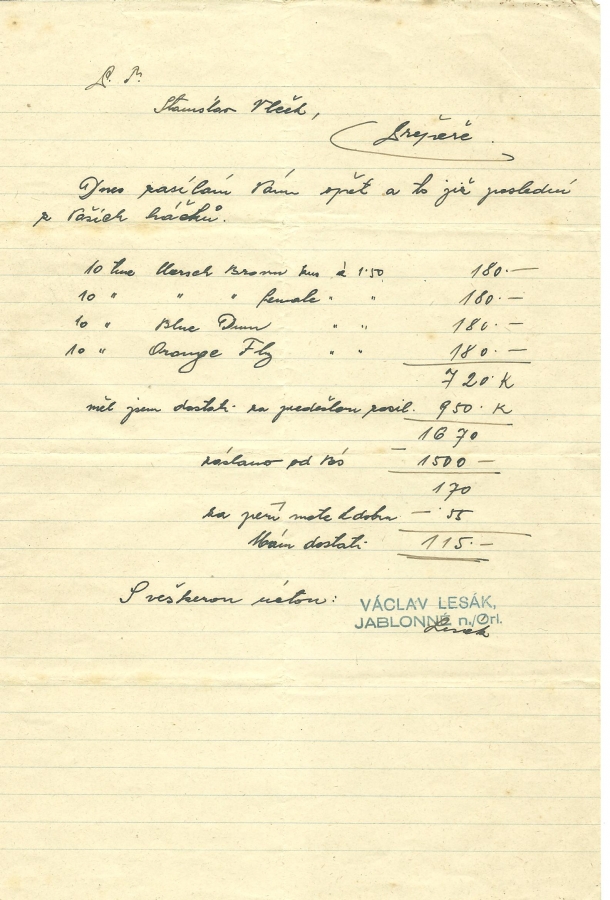 Stanislav Vlček,
Dnes zasílám Vám opět a to již poslední
z Vašich háčků.
10 tuc March Brown kus á 1·50 180·—
10 " " " female " " 180·—
10 " Blue Dun " " 180·—
10 " Orange Fly " " 180·—
720·K
měl jsem dostati za předešlou zasil. 950·K
1670
zasláno od Vás 1500—
170
za peří máte k dobru — 55
Mám dostati 115·—
S veškerou úctou:
VÁCLAV LESÁK,
JABLONNÉ n./Orl.
Lesák